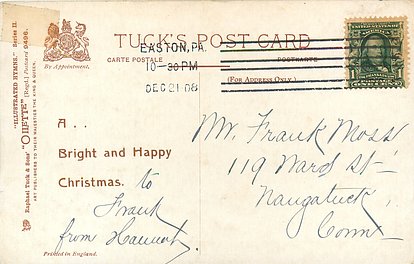 "ILLUSTRATED HYMNS." Series II.
"OILETTE" (Regd.) Postcard 9496.
Raphael Tuck & Sons'
ART PUBLISHERS TO THEIR MAJESTIES THE KING & QUEEN.
By Appointment.
TUCK'S POST CARD
CARTE POSTALE
POSTKARTE
(For Address Only.)
EASTON, PA.
10-30 PM
DEC 21 08
1 1
A..
Bright and Happy
Christmas. to
Frank
from Harriet.
Printed in England.
Mr. Frank Moss
119 Ward St
Naugatuck
Conn